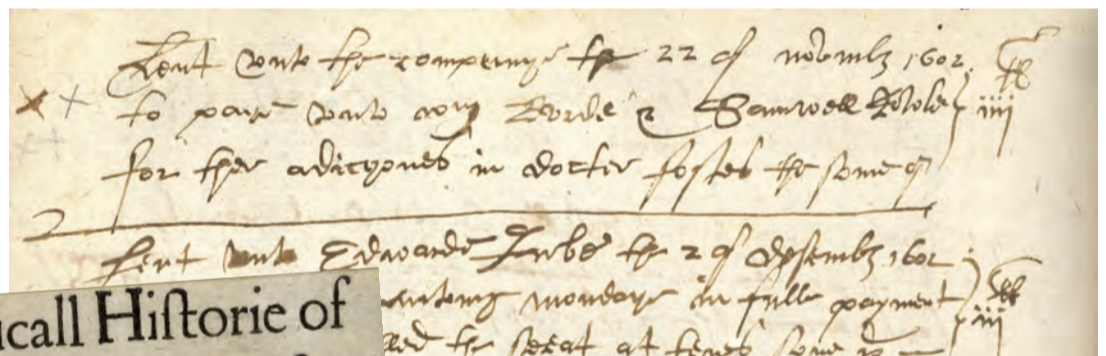 Lent vnto the companye the 22 of novmbȝ 1602
to paye vnto wm Borde & Samwell Rowle iiij li
for ther adicyones in docter fostes the some of
Lent vnto Edwarde the 2 of desembȝ 1602
mondaye in fulle payment iij
the at some
icall Hiſtorie of